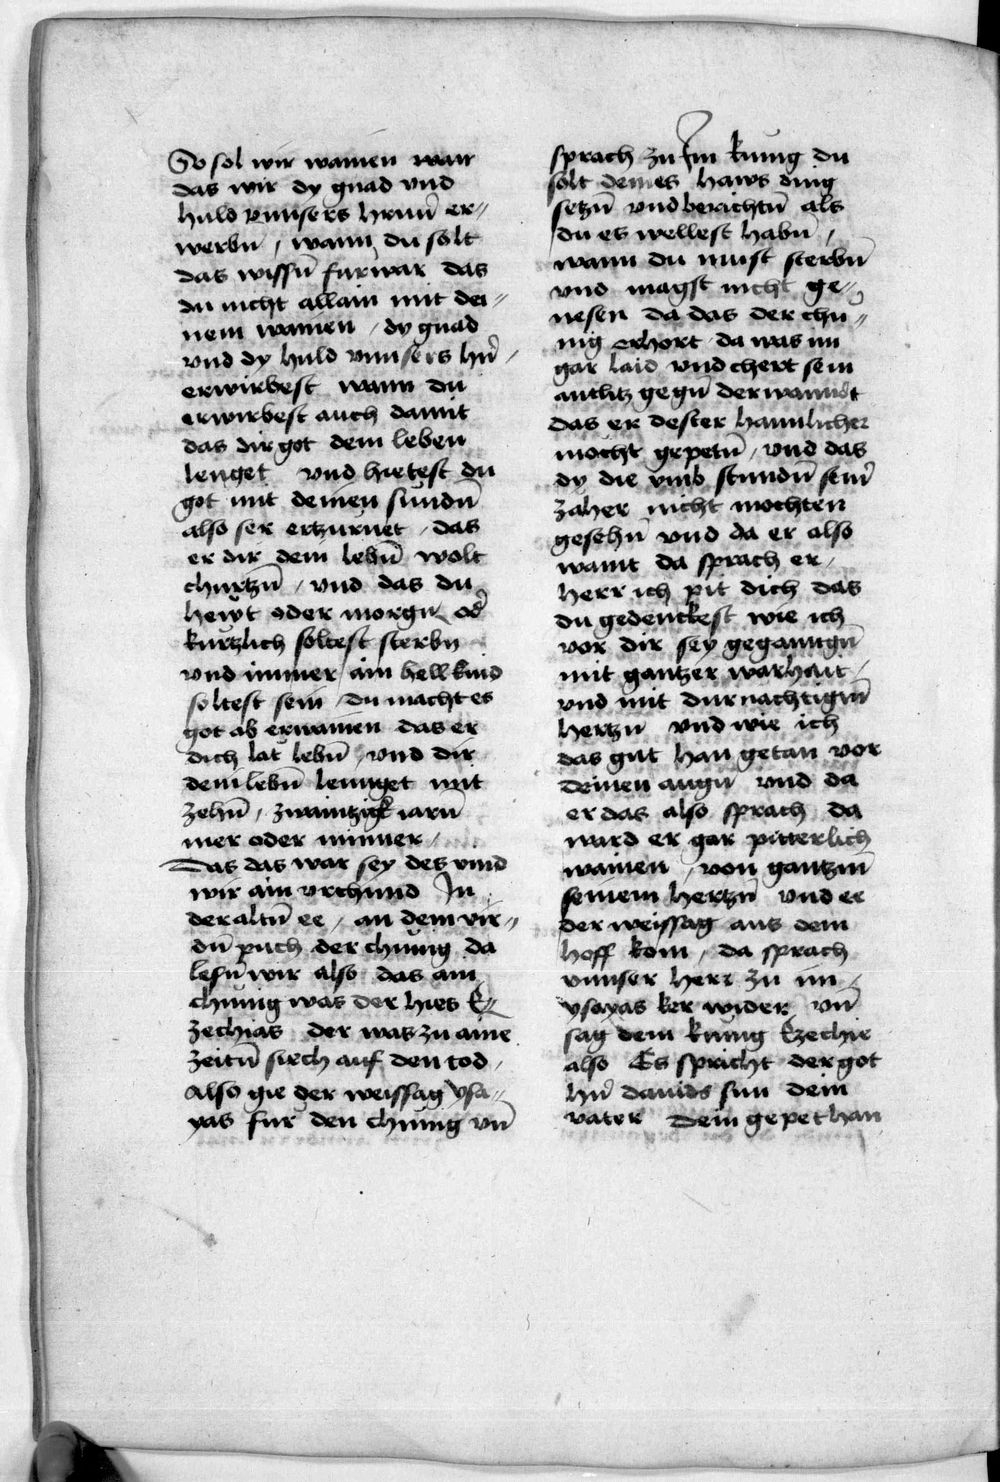 So sol wir wainen wan
das wir dy gnad vnd
huld vnnsers hrnn̄ er-
werbn̄, wann du solt
das wissn̄ furwar das
du nicht allain mit dei-
nem wainen, dy gnad
vnd dy huld vnnsers hr̄n,
erwirbest wann du
erwirbest auch damit
das dir got dein leben
lenget vnd hietest du
got mit deinen sundn̄
also ser ertzurnet, das
er dir dein lebn̄ wolt
churtzn̄, vnd das du
hewt oder morgn̄ od̄
kurtzlich soltest sterbn̄
vnd immer ain hellkind
soltest sein, du macht es
got ab erwainen das er
dich lat lebn̄, vnd dir
dein lebn̄ lennget mit
zehn̄, zwaintzigk iarn̄
mer oder minner,
Das das war sey des vind
wir ain vrchund In
der altn̄ ee, an dem vir-
dn̄ puch der chunig da
lesn̄ wir also das ain
chunig was der hies E-
zechias der was zu aine
zeitn̄ siech auf den tod,
Also gie der weissag ysa-
yas fur den chunig vn̄
sprach zu Im kunig du
solt deines haws ding
setzn̄ vnd berichtn̄ als
du es wellest habn̄,
wann du must sterbn̄
vnd magst nicht ge-
nesen da das der chu-
nig erhort da was im
gar laid vnd chert sein
antlitz gegn̄ der wanndt
das er dester haimlicher
mocht gepetn̄, vnd das
dy die vmb stundn̄ sein̄
zaher nicht mochten
gesehn̄ vnd da er also
waint da sprach er,
herr ich pit dich das
du gedenckest wie ich
vor dir sey geganngn̄
mit gantzer warhait,
vnd mit durnachtigm̄
hertzn̄ vnd wie ich
das gut han getan vor
deinen augn̄ vnd da
er das also sprach da
ward er gar pitterlich
wainen, von gantzm̄
seinem hertzn̄ vnd ee
der weissag aus dem
hoff kom, da sprach
vnnser herr zu im,
ysayas ker wider vn̄
sag dem kunig Ezechie
also Es spricht der got
hr̄n dauids sun dein
vater Dein gepet han